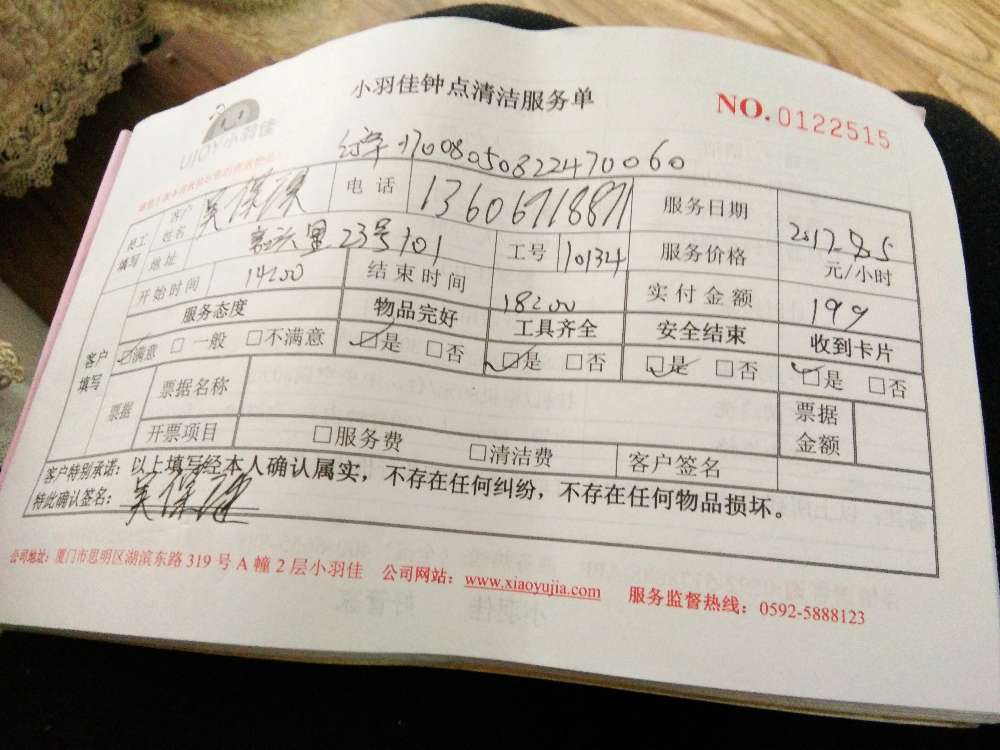 小羽佳钟点清洁服务单
NO.0122515
UJOY小羽佳
17008050822470060
员工填写 客户姓名 吴 电话 13606718871 服务日期 2017-8-5
地址 里23号101 工号 10134 服务价格 元/小时
开始时间 14:00 结束时间 18:00 实付金额 199
服务态度 物品完好 工具齐全 安全结束 收到卡片
客户填写 ☑满意 □一般 □不满意 ☑是 □否 ☑是 □否 ☑是 □否 ☑是 □否
票据 票据名称 票据金额
开票项目 □服务费 □清洁费 客户签名
客户特别承诺：以上填写经本人确认属实，不存在任何纠纷，不存在任何物品损坏。
特此确认签名：吴
公司地址：厦门市思明区湖滨东路319号A幢2层小羽佳 公司网站：www.xiaoyujia.com 服务监督热线：0592-5888123